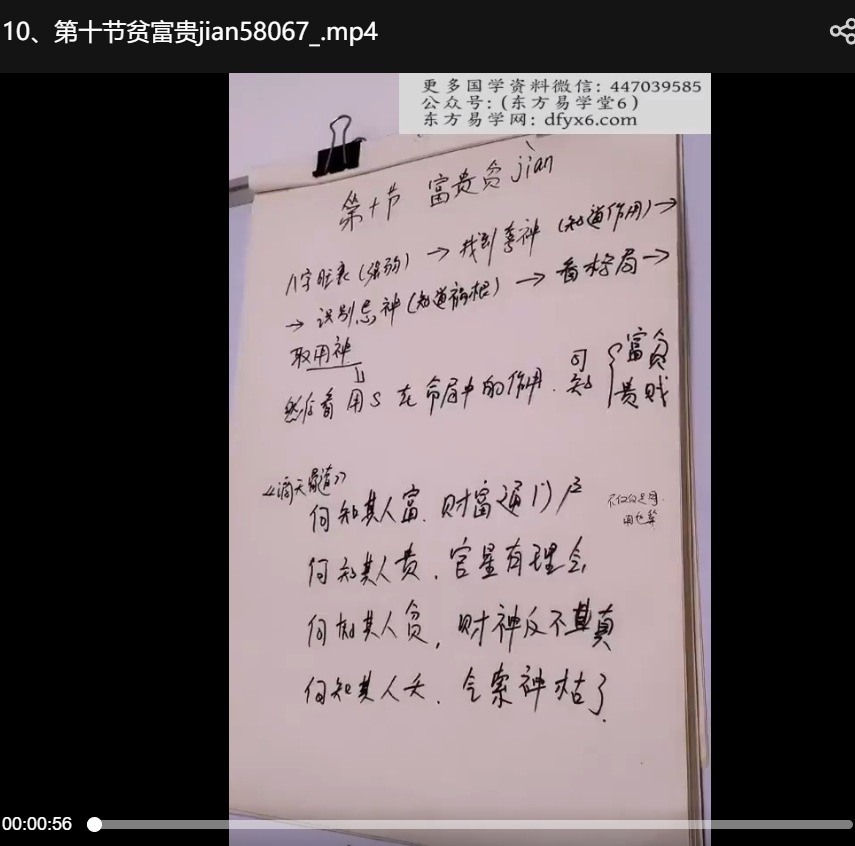 10、第十节贫富贵jian58067_.mp4
更多国学资料微信: 447039585
公众号:(东方易学堂6)
东方易学网: dfyx6.com
第十节 富贵贫 jiàn
八字旺衰(强弱) → 找到喜神 (知道作用) →
→ 识别忌神(知道病根) → 看格局 →
取用神
然后看用S在命局中的作用. 可知 { 富贫 贵贱
《滴天髓》
何知其人富. 财富通门户
何知其人贵. 官星有理会
何知其人贫, 财神反不真
何知其人夭. 气索神枯了.
00:00:56